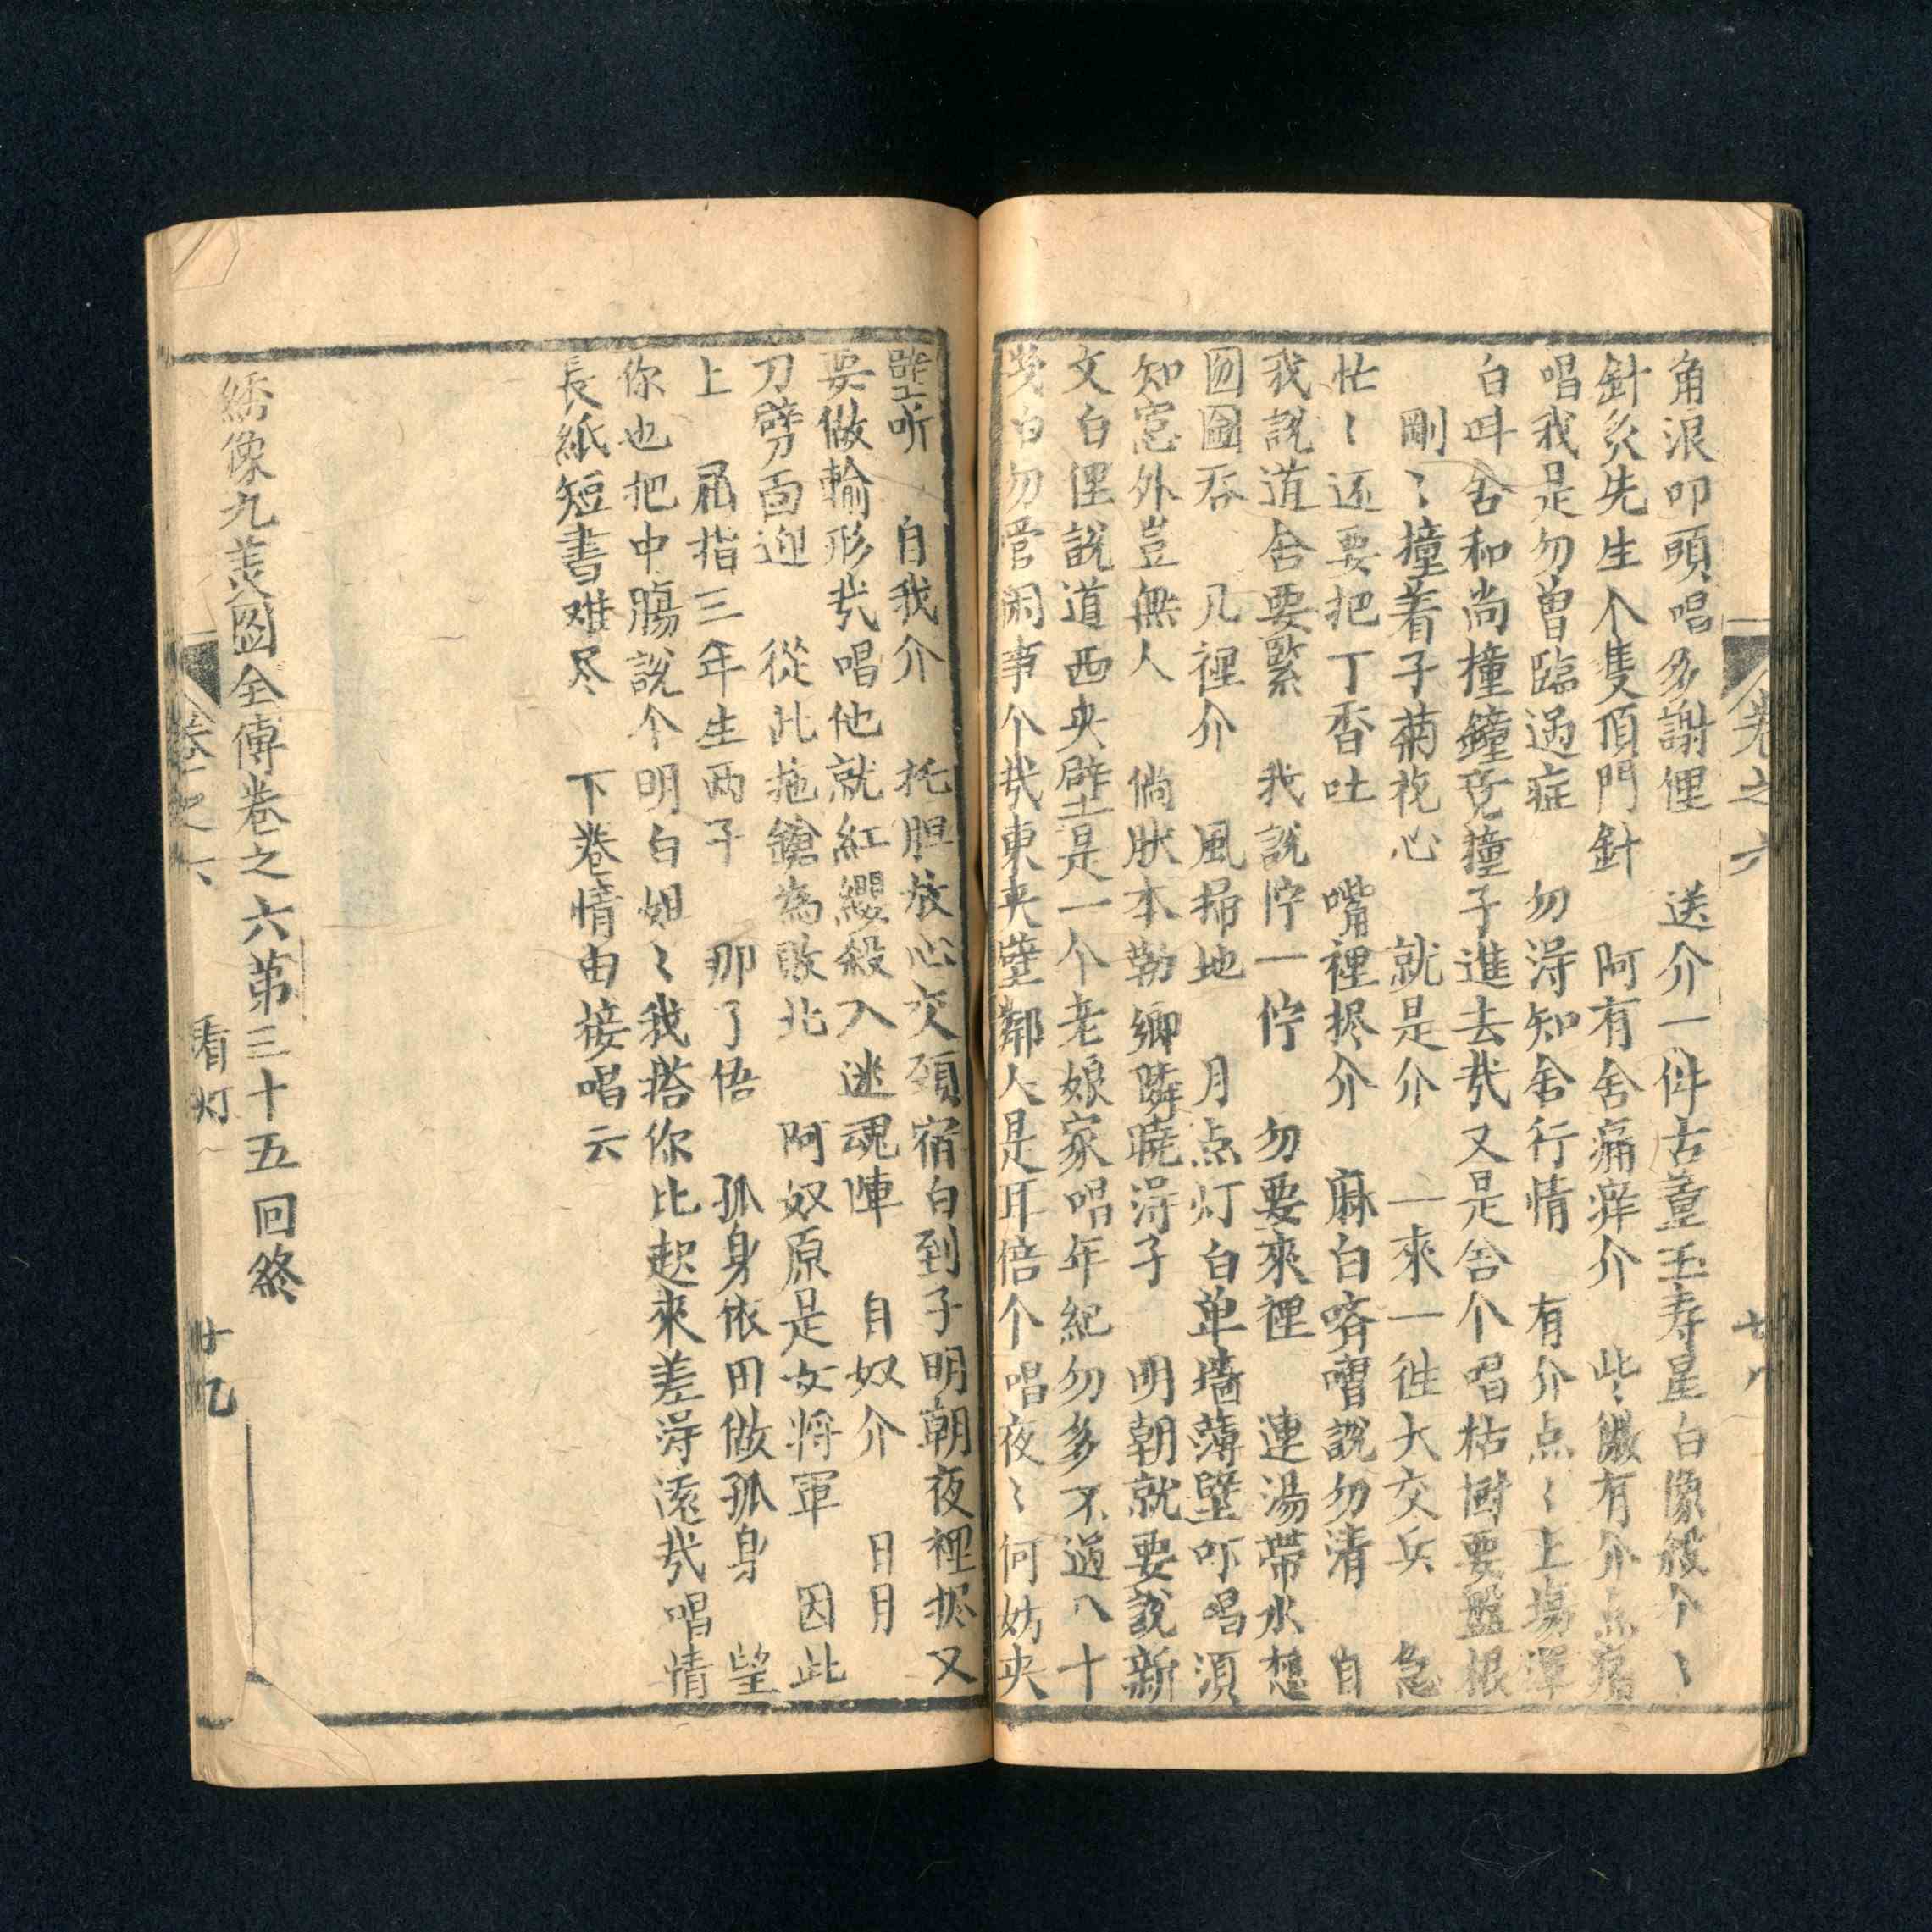 卷之六
角浪叩頭唱多謝俚 送介一件古董玉寿星白像 个〻
針灸先生个隻頂門針 阿有舍痛痒介 有介点
唱我是勿曾臨過症 勿淂知舍行情 有介点〻上塲渾
白呌舍和尚撞鐘竟撞子進去哉又是舍个唱枯樹要盤根
剛〻撞着子菊花心 就是介 一來一徃大交兵 急
忙〻还要把丁香吐 嘴裡 介 麻白 說勿清 自
我說道舍要緊 我說佇一佇 勿要來裡 連湯帶水想
囫圇吞 几裡介 風掃地 月点灯白单墻薄壁吓唱須
知窓外豈無人 倘肰本勒卿隣曉淂子 明朝就要說新
文白俚說道西夾壁是一个老娘家唱年紀勿多不過八十
白勿管闲事个哉東夹壁鄰人是耳 个唱夜〻何妨夾
壁听 自我介 托胆放心交頸宿白到子明朝夜裡 又
要做輸形哉唱他就紅纓殺入迷魂陣 自奴介 日月
刀劈面迎 從此拖鎗為敗北 阿奴原是女將軍 因此
上 屈指三年生两子 那了悟 孤身依旧做孤身 望
你也把中膓說个明白姐〻我搭你比起來差淂遠哉唱情
長紙短書难尽 下卷情由接唱云
綉像九美图全傳卷之六第三十五回終
卷之六 看灯 廿九